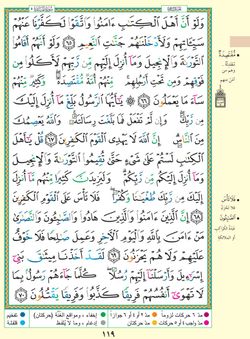 وَلَوْ أَنَّ أَهْلَ ٱلْكِتَٰبِ ءَامَنُوا۟ وَٱتَّقَوْا۟ لَكَفَّرْنَا عَنْهُمْ
سَيِّـَٔاتِهِمْ وَلَأَدْخَلْنَٰهُمْ جَنَّٰتِ ٱلنَّعِيمِ ٦٥ وَلَوْ أَنَّهُمْ أَقَامُوا۟
ٱلتَّوْرَىٰةَ وَٱلْإِنجِيلَ وَمَآ أُنزِلَ إِلَيْهِم مِّن رَّبِّهِمْ لَأَكَلُوا۟ مِن
فَوْقِهِمْ وَمِن تَحْتِ أَرْجُلِهِم مِّنْهُمْ أُمَّةٌ مُّقْتَصِدَةٌ وَكَثِيرٌ مِّنْهُمْ
سَآءَ مَا يَعْمَلُونَ ٦٦ يَٰٓأَيُّهَا ٱلرَّسُولُ بَلِّغْ مَآ أُنزِلَ إِلَيْكَ
مِن رَّبِّكَ وَإِن لَّمْ تَفْعَلْ فَمَا بَلَّغْتَ رِسَالَتَهُۥ وَٱللَّهُ يَعْصِمُكَ
مِنَ ٱلنَّاسِ إِنَّ ٱللَّهَ لَا يَهْدِى ٱلْقَوْمَ ٱلْكَٰفِرِينَ ٦٧ قُلْ يَٰٓأَهْلَ
ٱلْكِتَٰبِ لَسْتُمْ عَلَىٰ شَىْءٍ حَتَّىٰ تُقِيمُوا۟ ٱلتَّوْرَىٰةَ وَٱلْإِنجِيلَ
وَمَآ أُنزِلَ إِلَيْكُم مِّن رَّبِّكُمْ وَلَيَزِيدَنَّ كَثِيرًا مِّنْهُم مَّآ أُنزِلَ
إِلَيْكَ مِن رَّبِّكَ طُغْيَٰنًا وَكُفْرًا فَلَا تَأْسَ عَلَى ٱلْقَوْمِ ٱلْكَٰفِرِينَ
٦٨ إِنَّ ٱلَّذِينَ ءَامَنُوا۟ وَٱلَّذِينَ هَادُوا۟ وَٱلصَّٰبِـُٔونَ وَٱلنَّصَٰرَىٰ
مَنْ ءَامَنَ بِٱللَّهِ وَٱلْيَوْمِ ٱلْءَاخِرِ وَعَمِلَ صَٰلِحًا فَلَا خَوْفٌ
عَلَيْهِمْ وَلَا هُمْ يَحْزَنُونَ ٦٩ لَقَدْ أَخَذْنَا مِيثَٰقَ بَنِىٓ
إِسْرَٰٓءِيلَ وَأَرْسَلْنَآ إِلَيْهِمْ رُسُلًا كُلَّمَا جَآءَهُمْ رَسُولٌۢ بِمَا
لَا تَهْوَىٰٓ أَنفُسُهُمْ فَرِيقًا كَذَّبُوا۟ وَفَرِيقًا يَقْتُلُونَ ٧٠
١١٩